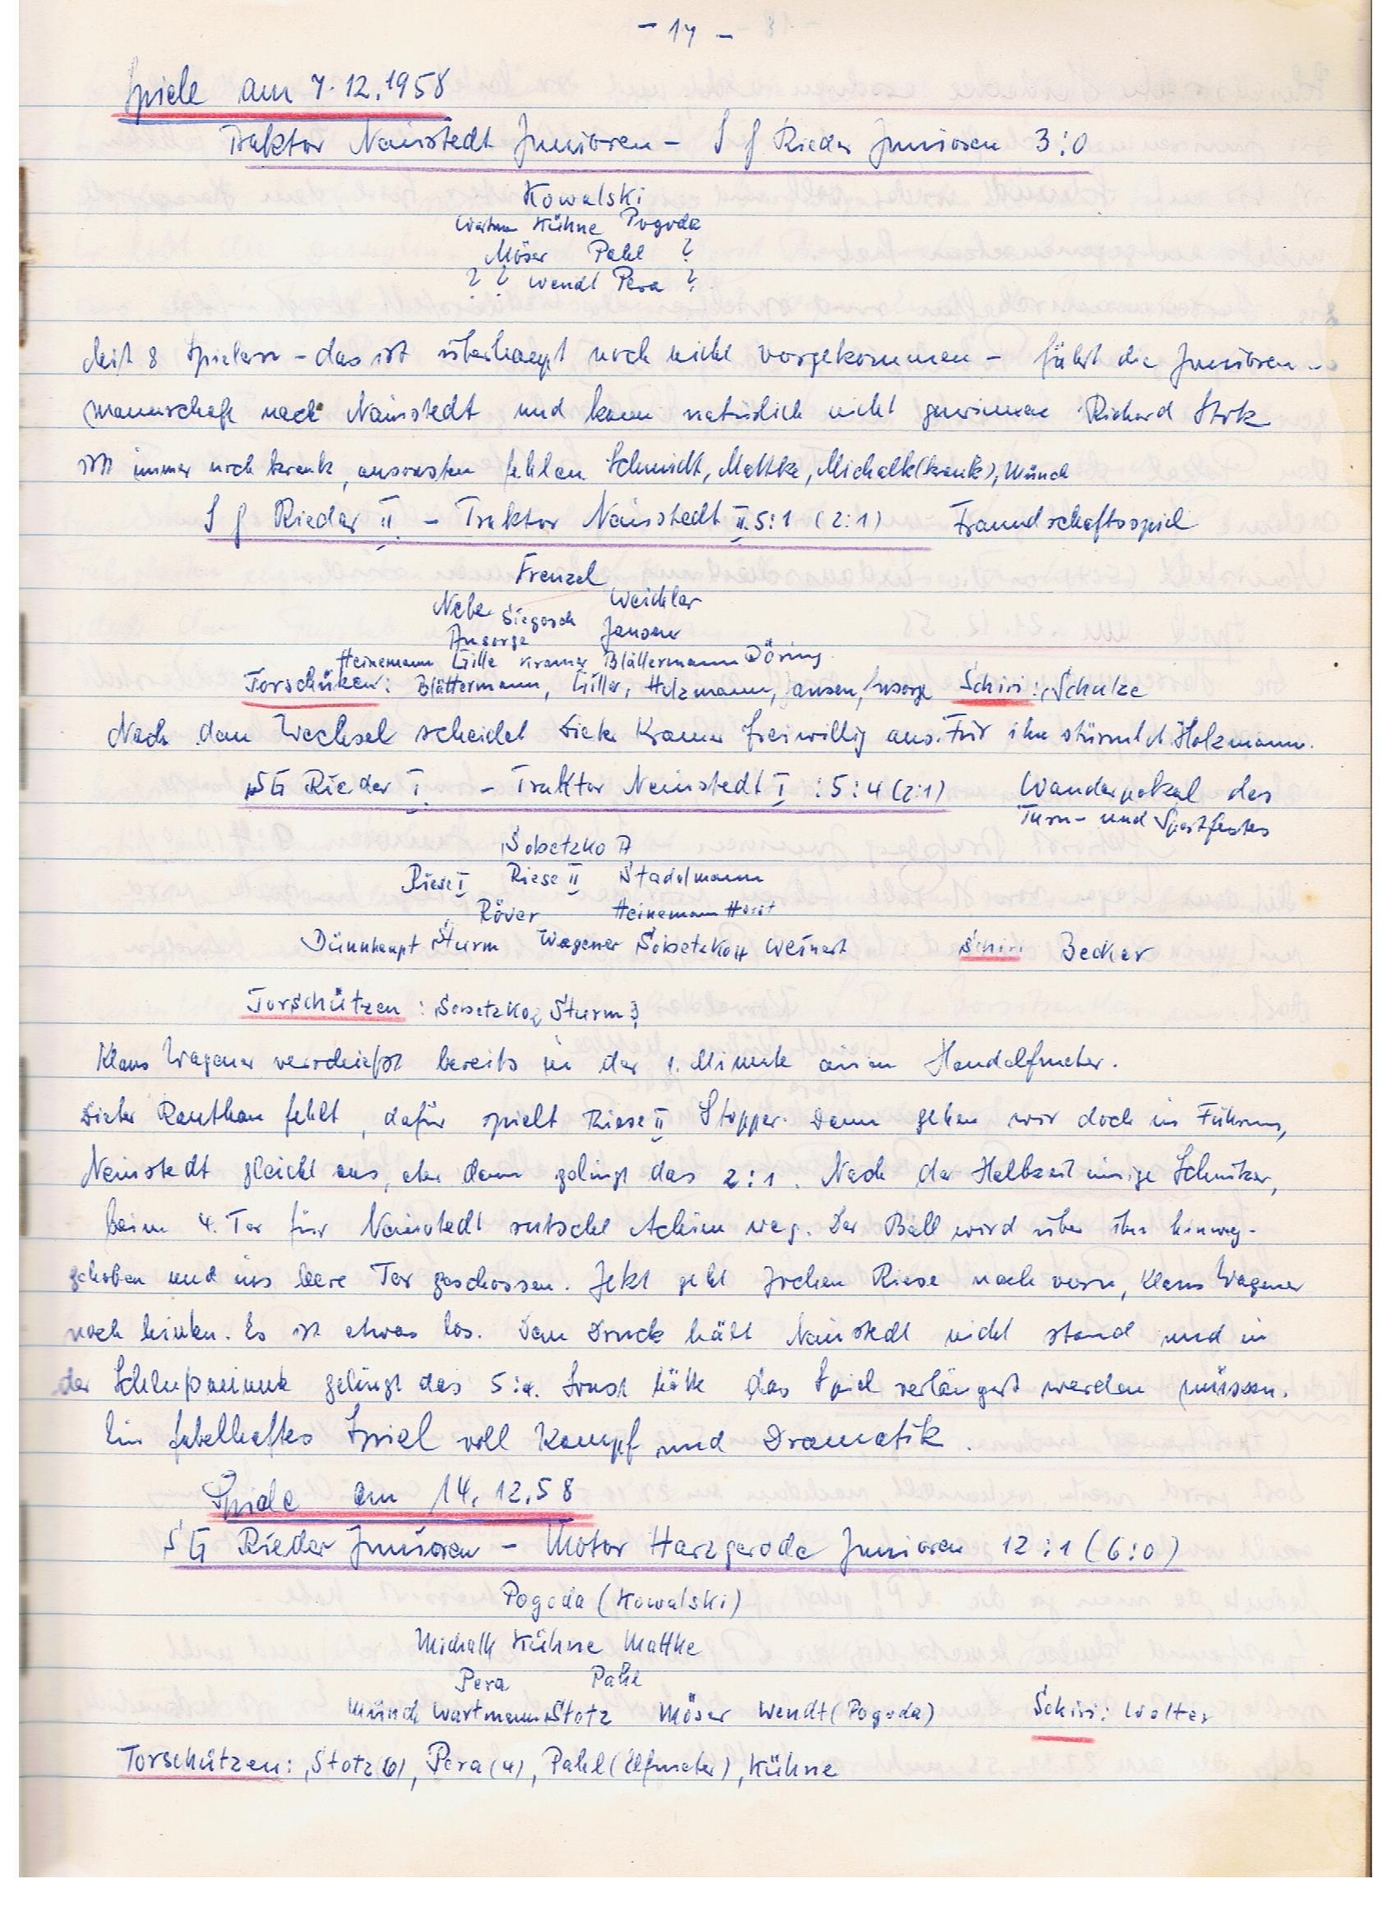 - 17 -
Spiele am 7.12.1958
Traktor Neinstedt Junioren - S G Rieder Junioren 3:0
Kowalski
Wartm Kühne Pogoda
Möser Pahl ?
? ? Wendt Pera ?
Mit 8 Spielern - das ist überhaupt noch nicht vorgekommen - fährt die Junioren-
mannschaft nach Neinstedt und kann natürlich nicht gewinnen. Richard Stotz
ist immer noch krank, ansonsten fehlen Schmidt, Mattke, Michalk(krank), Münch
S G Rieder II. - Traktor Neinstedt II. 5:1 (2:1) Freundschaftsspiel
Frenzel
Nebe Siegosch Weichler
Ansorge Jansen
Heinemann Gille Kramer Blättermann Döring
Torschützen: Blättermann, Giller, Holzmann, Jansen, Ansorge Schiri: Schulze
Nach dem Wechsel scheidet Dieter Kramer freiwillig aus. Für ihn stürmt Holzmann.
SG Rieder I. - Traktor Neinstedt I : 5:4 (2:1) Wanderpokal des
Turn- und Sportfestes
Sobetzko A
Riese I Riese II Stadelmann
Röver Heinemann Horst
Dünnhaupt Sturm Wagener Sobetzko H Weinert Schiri Becker
Torschützen: Sobetzko 2 Sturm 3
Klaus Wagener verschießt bereits in der 1. Minute einen Handelfmeter.
Dieter Rauthan fehlt, dafür spielt Riese II Stopper. Dann gehen wir doch in Führung,
Neinstedt gleicht aus, aber dann gelingt das 2:1. Nach der Halbzeit einige Schnitzer,
beim 4. Tor für Neinstedt rutscht Achim weg. Der Ball wird über ihn hinweg-
gehoben und ins leere Tor geschossen. Jetzt geht Jochen Riese nach vorn, Klaus Wagener
nach hinten. Es ist etwas los. Dem Druck hält Neinstedt nicht stand und in
der Schlußminute gelingt das 5:4. Sonst hätte das Spiel verlängert werden müssen.
Ein fabelhaftes Spiel voll Kampf und Dramatik.
Spiele am 14.12.58
SG Rieder Junioren - Motor Harzgerode Junioren 12:1 (6:0)
Pogoda (Kowalski)
Michalk Kühne Mattke
Pera Pahl
Münch Wartmann Stotz Möser Wendt (Pogoda) Schiri: Wolter
Torschützen: Stotz (6), Pera (4), Pahl (Elfmeter), Kühne